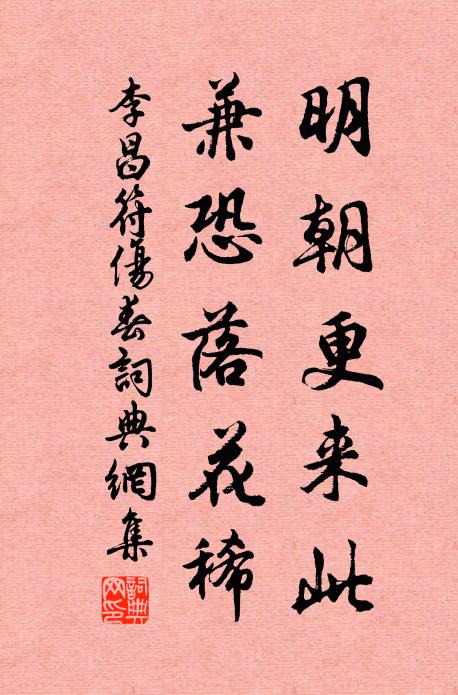 明朝更来此
兼恐落花稀
李昌符傷春詞典網集
詞典網印